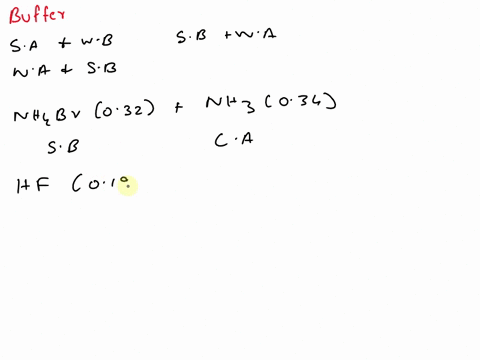 Buffer
S.A + W.B S.B + W.A
W.A + S.B
NH4Br (0.32) + NH3 (0.34)
S.B C.A
HF (0.18